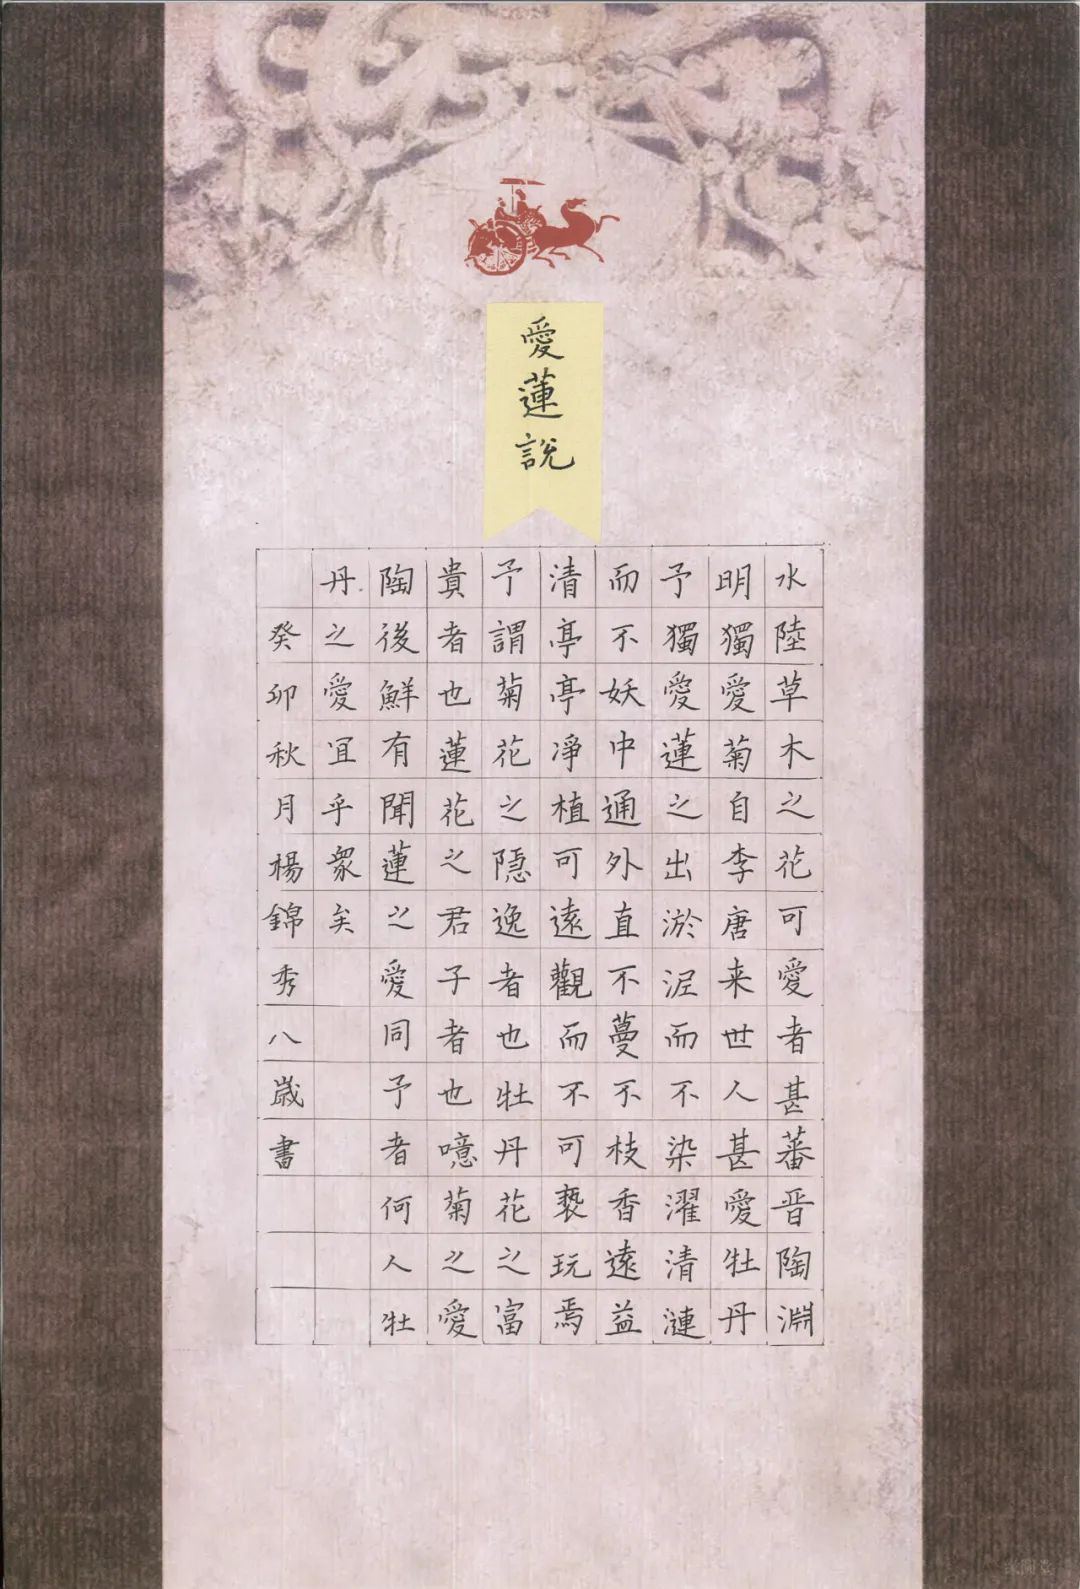 愛蓮說
水陸草木之花可愛者甚蕃晋陶淵
明獨愛菊自李唐来世人甚愛牡丹
予獨愛蓮之出淤泥而不染濯清漣
而不妖中通外直不蔓不枝香遠益
清亭亭凈植可遠觀而不可褻玩焉
予謂菊花之隱逸者也牡丹花之富
貴者也蓮花之君子者也噫菊之愛
陶後鮮有聞蓮之愛同予者何人牡
丹之愛宜乎衆矣
癸卯秋月楊錦秀八歲書